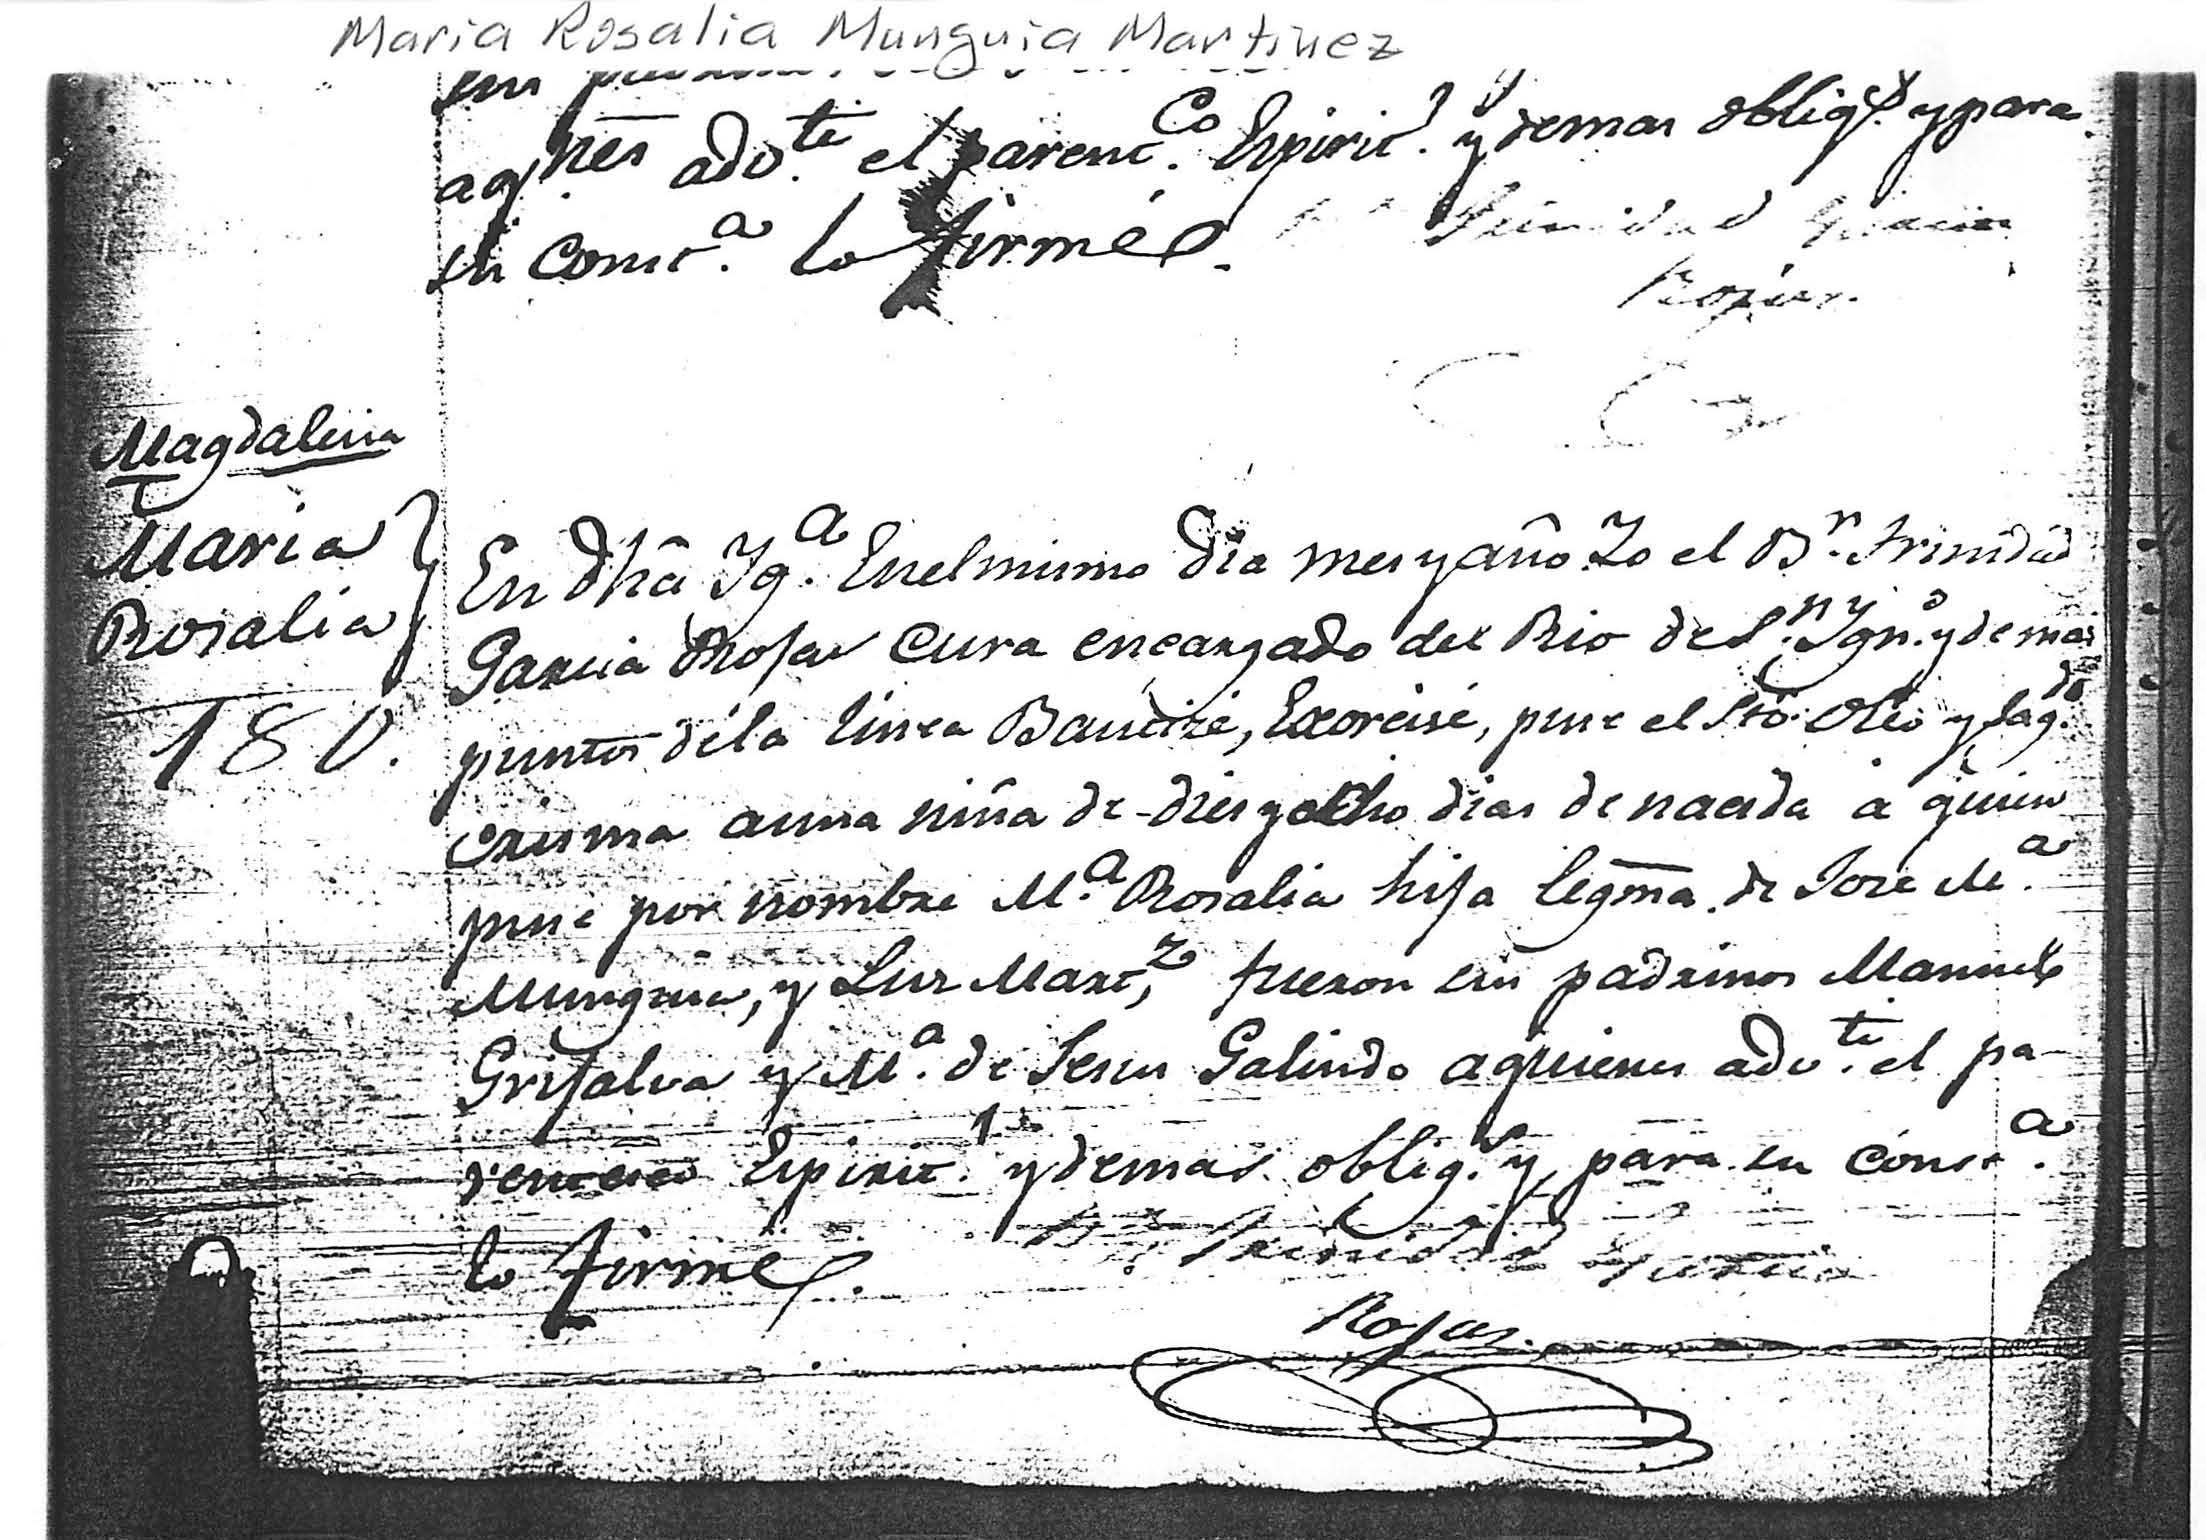 Maria Rosalia Munguia Martinez
sus
aqnes adv.te el parentCo. Espirit.l y demas oblig.s y para
su const.a lo firmé.
Trinidad Garcia
Rojas.
Magdalena
Maria
Rosalia
180.
En dha Yg.a Enelmismo dia mes y año Yo el Br. Trinidad
Garcia Rojas cura encargado del Rio de S.n Ygn.o y demas
puntos dela linea Bautizé, Exorcisé, puse el Sto. Oleo y Sag.do
crisma auna niña de diez y ocho dias de nacida á quien
puse por nombre M.a Rosalia hija legma. de Jose M.a
Munguia, y Luz Mart,z fueron sus padrinos Manuel
Grijalva y M.a de Jesus Galindo aquienes adv.te el pa-
rentesco Espirit.l y demas oblig.s y para su const.a
lo firmé.
Br. Trinidad Garcia
Rojas.